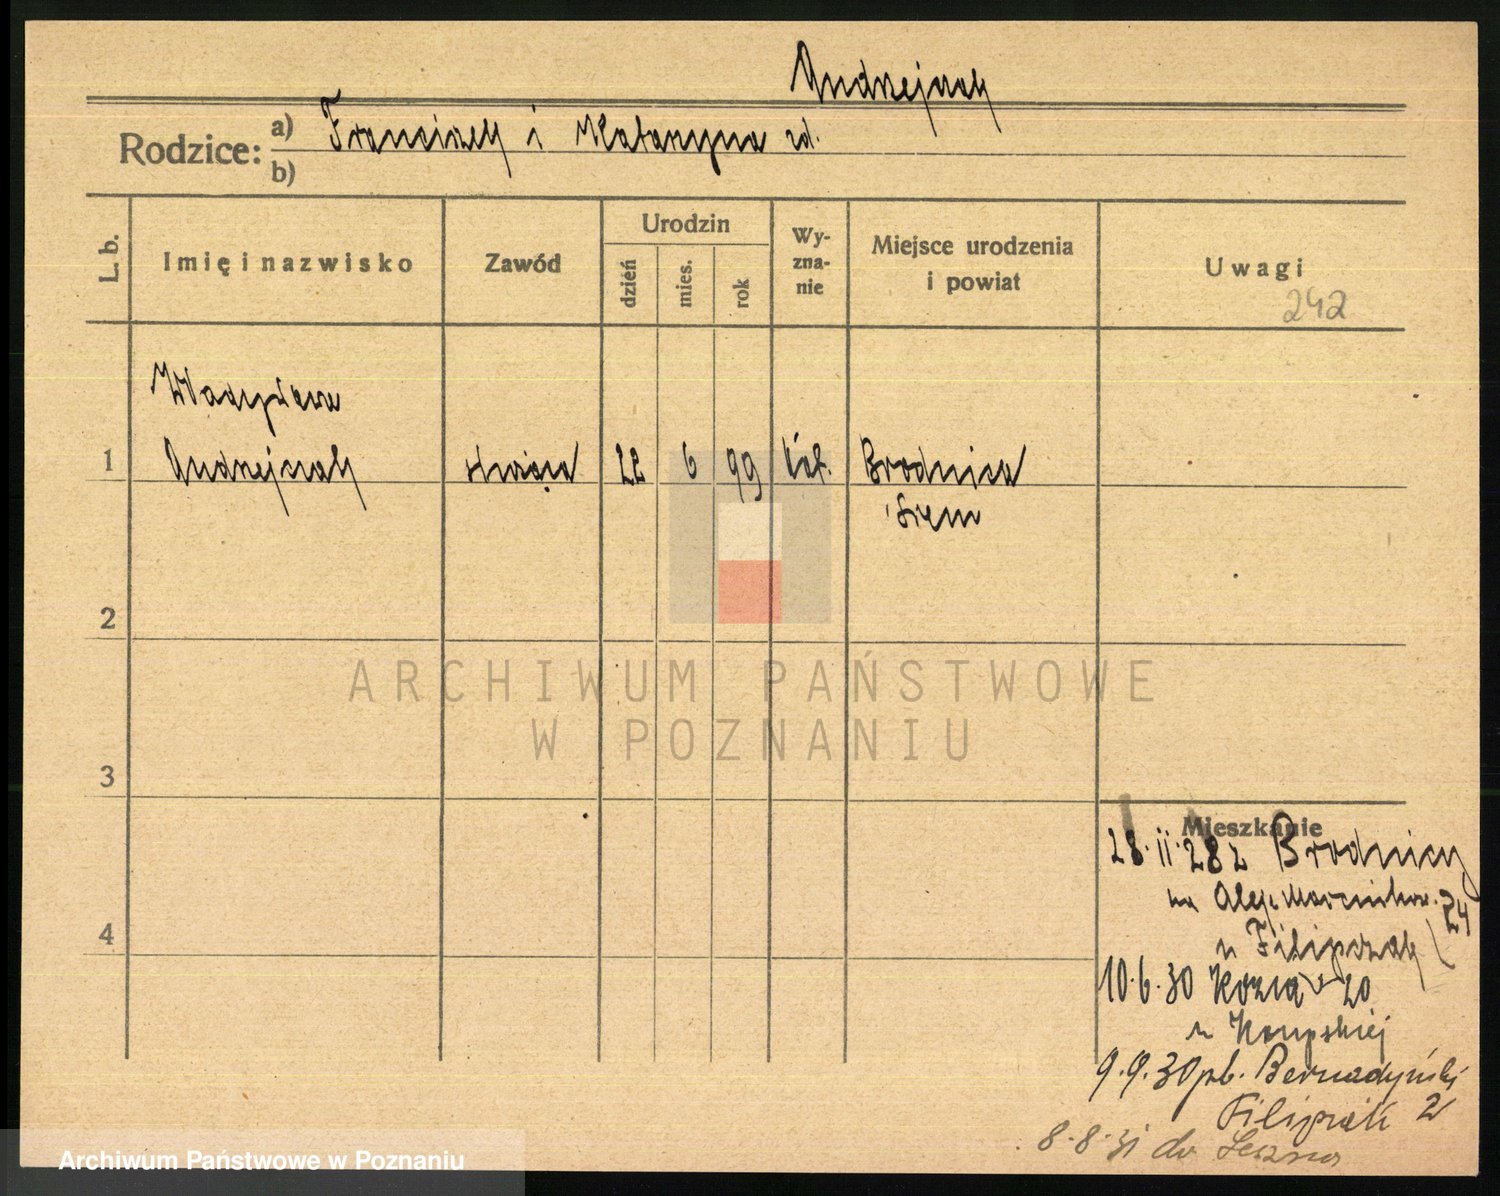 Andrzejczak
Rodzice: a) Franciszek i Katarzyna zd.
b)
L. b.
Imię i nazwisko
Zawód
Urodzin
dzień
mies.
rok
Wy-
zna-
nie
Miejsce urodzenia
i powiat
Uwagi
242
Władysława
1 Andrzejczak służąca 22 6 99 kat. Brodnica
Śrem
2
3
4
ARCHIWUM PAŃSTWOWE
W POZNANIU
Mieszkanie
28.II.28 z Brodnicy
na Alej. Marcinkow. 24
u Filipczak
10.6.30 Kozia 20
u
9.9.30 pl. Bernadyński
Filipiak 2
8.8.31 do Leszna
Archiwum Państwowe w Poznaniu